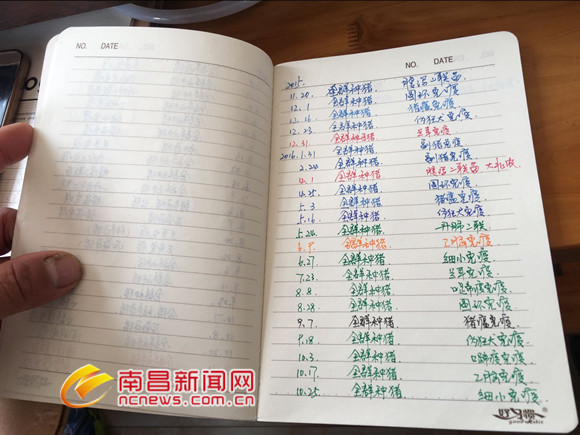 NO. DATE
NO. DATE
2015.
11.20. 全群种猪. 腹泻二联苗
12.1 全群种猪. 圆环免疫
12.16 全群种猪. 猪瘟免疫
12.23 全群种猪 伪狂犬免疫.
12.31 全群种猪 兰耳免疫
2016.1.31 全群种猪 副猪免疫
2.24 全群种猪 副猪免疫
4.1 全群种猪 腹泻二联苗
4.25. 全群种猪. 圆环免疫.
5.3 全群种猪. 猪瘟免疫.
5.16. 全群种猪. 伪狂犬免疫.
5.24 全群种猪 二联
6.9. 全群种猪. 乙脑免疫
6.27 全群种猪. 细小免疫.
7.23 全群种猪. 兰耳免疫.
8.8 全群种猪. 口蹄疫免疫
8.28. 全群种猪. 圆环免疫
9.7 全群种猪 猪瘟免疫.
9.18 全群种猪 伪狂犬免疫.
10.3 全群种猪 口蹄疫免疫
10.17 全群种猪. 乙脑免疫.
10.25 全群种猪. 细小免疫.
南昌新闻网
ncnews.com.cn